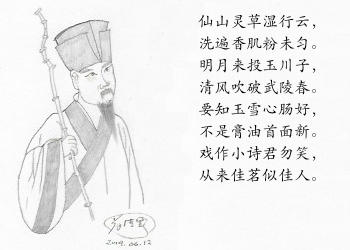 仙山灵草湿行云，
洗遍香肌粉未匀。
明月来投玉川子，
清风吹破武陵春。
要知玉雪心肠好，
不是膏油首面新。
戏作小诗君勿笑，
从来佳茗似佳人。
2019.06.12